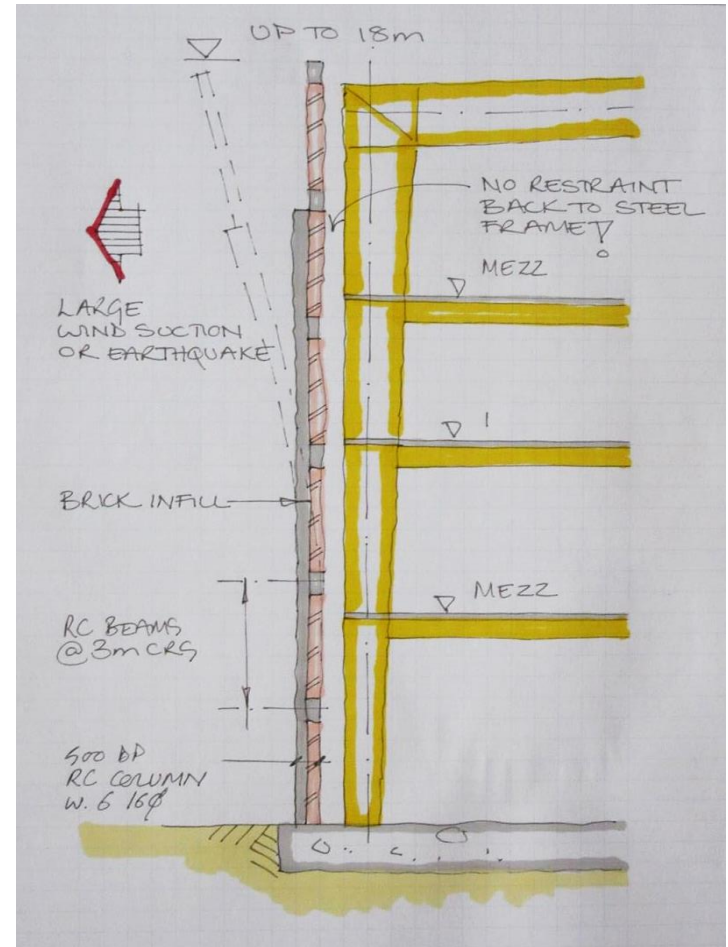 UP TO 18m
NO RESTRAINT
BACK TO STEEL
FRAME!
MEZZ
LARGE
WIND SUCTION
OR EARTHQUAKE
1
BRICK INFILL
MEZZ
RC BEAMS
@ 3m CRS
500 DP
RC COLUMN
W. 6 16φ